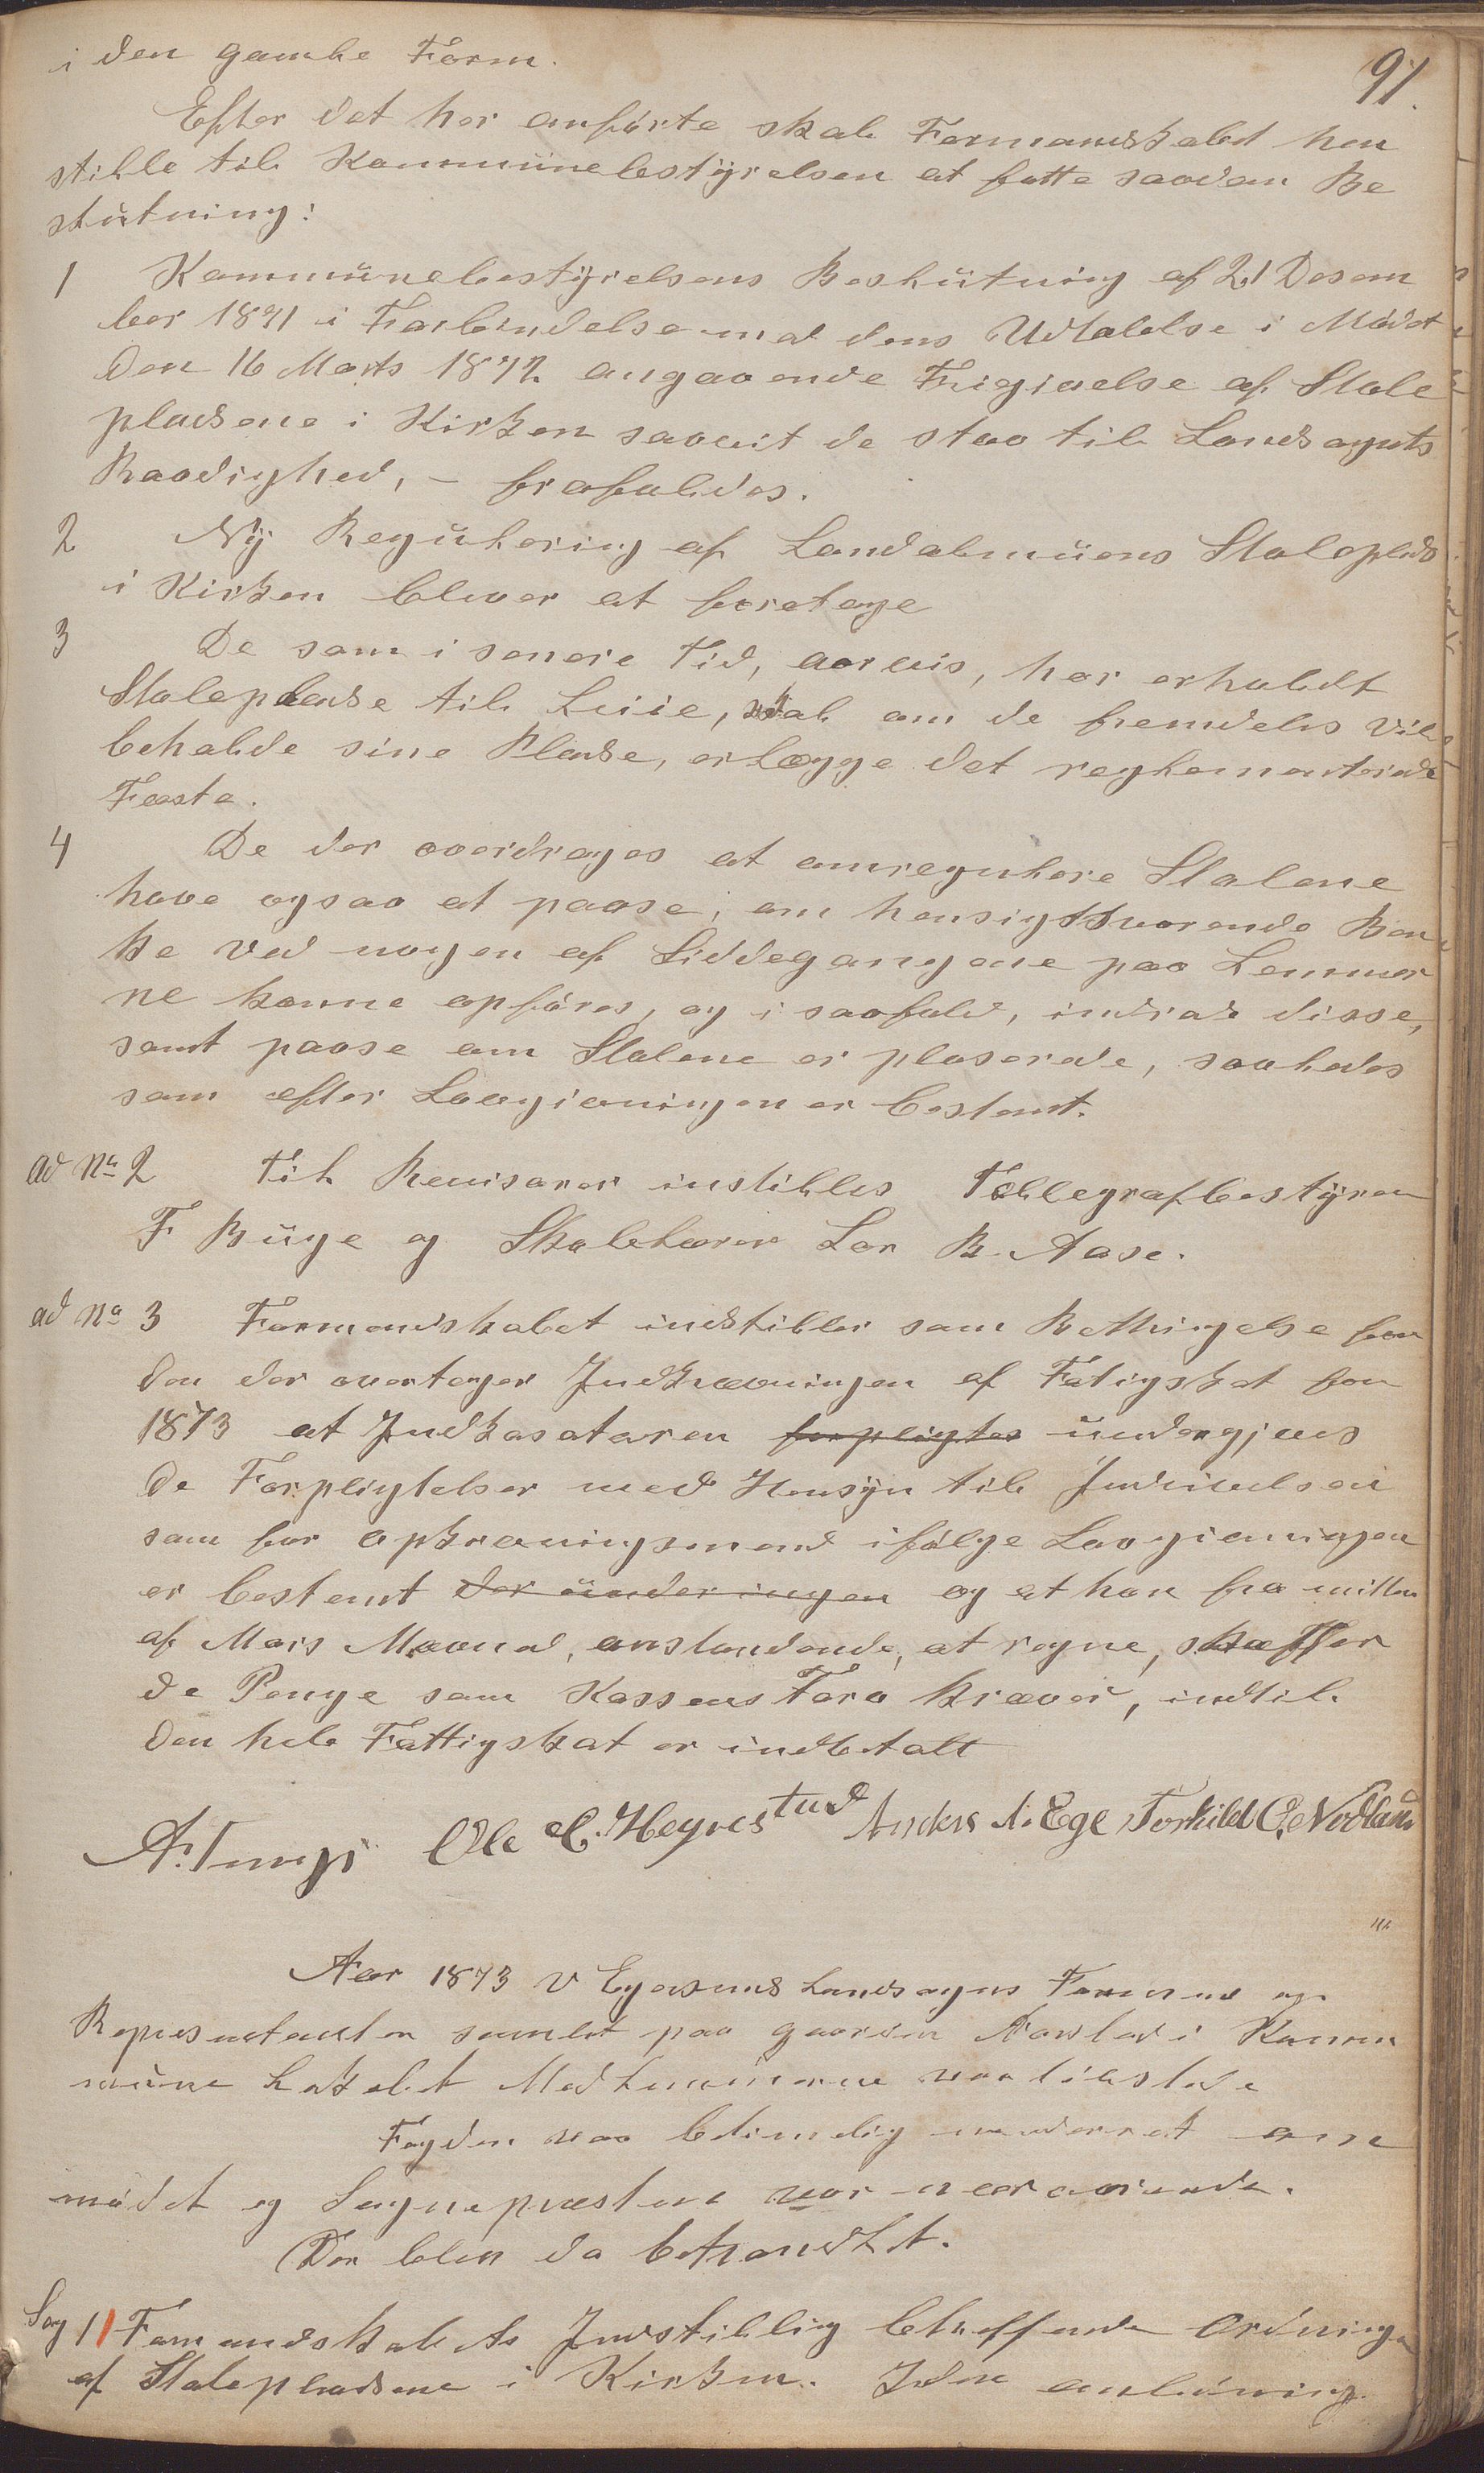 91.
i den gamle Form.
Efter det her anførte skal Formandskabet hen
stille til Kommunebestyrelsen at fatte saadan Be
slutning:
1 Kommunebestyrelsens Beslutning af 21 Desem
ber 1871 i Forbindelse med dens Udtalelse i Mødet
den 16 Marts 1872 angaaende Frigivelse af Stole
pladsene i Kirken saavit de staa til Landsognets
Raadighed, – frafaldes.
2 Ny Regulering af Landalmuens Stoleplads
i Kirken bliver at foretage
3 De som i senere Tid, aarvis, har erholdt
Stolepladse til Leiie, skal om de fremdeles vil
beholde sine Pladse, erlægge det reglementerede
Fæste.
4 De der overdrages at omregulere Stolene
have ogsaa at paase, om hensigtsvarende Ben
ke ved nogen af Siddegangene paa Lemmer
ne kunne opføres, og i saafald, indrede disse,
samt paase om Stolene er plaserede, saaledes
som efter Lovgivningen er bestemt.
ad No 2 Til Revisorer instilles Tellegrafbestyrer
F Buge og Skolelærer Lar B. Aase.
ad No 3 Formandskabet indstiller som Bethingelse for
den der overtager Indkrævningen af Fatigskat for
1873 at Indkasatoren forpligtes undergives
de Forpligtelser med Hensyn til Indrivelsen
som for opkrævningsmend ifølge Lovgivningen
er bestemt der under ingen og at han fra mitten
af Mars Maaned, anstundende, at regne, skaffer
de Penge som Kassens Tarv kræver, indtil
den hele Fattigskat er indbetalt
Ole C. Hegrestad Anders A. Ege Torkild O. Nodland
Aar 1873 v Egersunds Landsogns Formend og
Representanter samlet paa gaarden Aarstad i Kom
mune lokalet Medlemmerne var tilstede
Fogden var betimelig underrettet om
mødet og Sognepresten var nærværende.
Der blev da behandlet.
Sag 1 Formandskabets Indstilling betreffende Ordningen
af Stolepladsene i Kirken. I den anledning